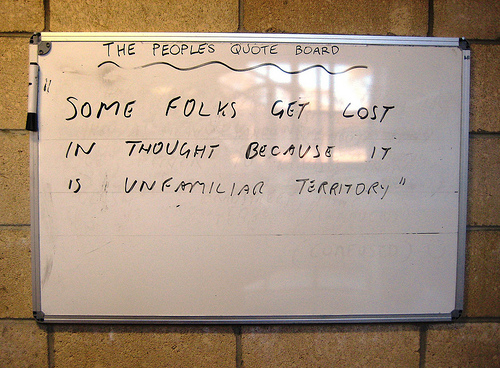 THE PEOPLES QUOTE BOARD
"SOME FOLKS GET LOST
IN THOUGHT BECAUSE IT
IS UNFAMILIAR TERRITORY"